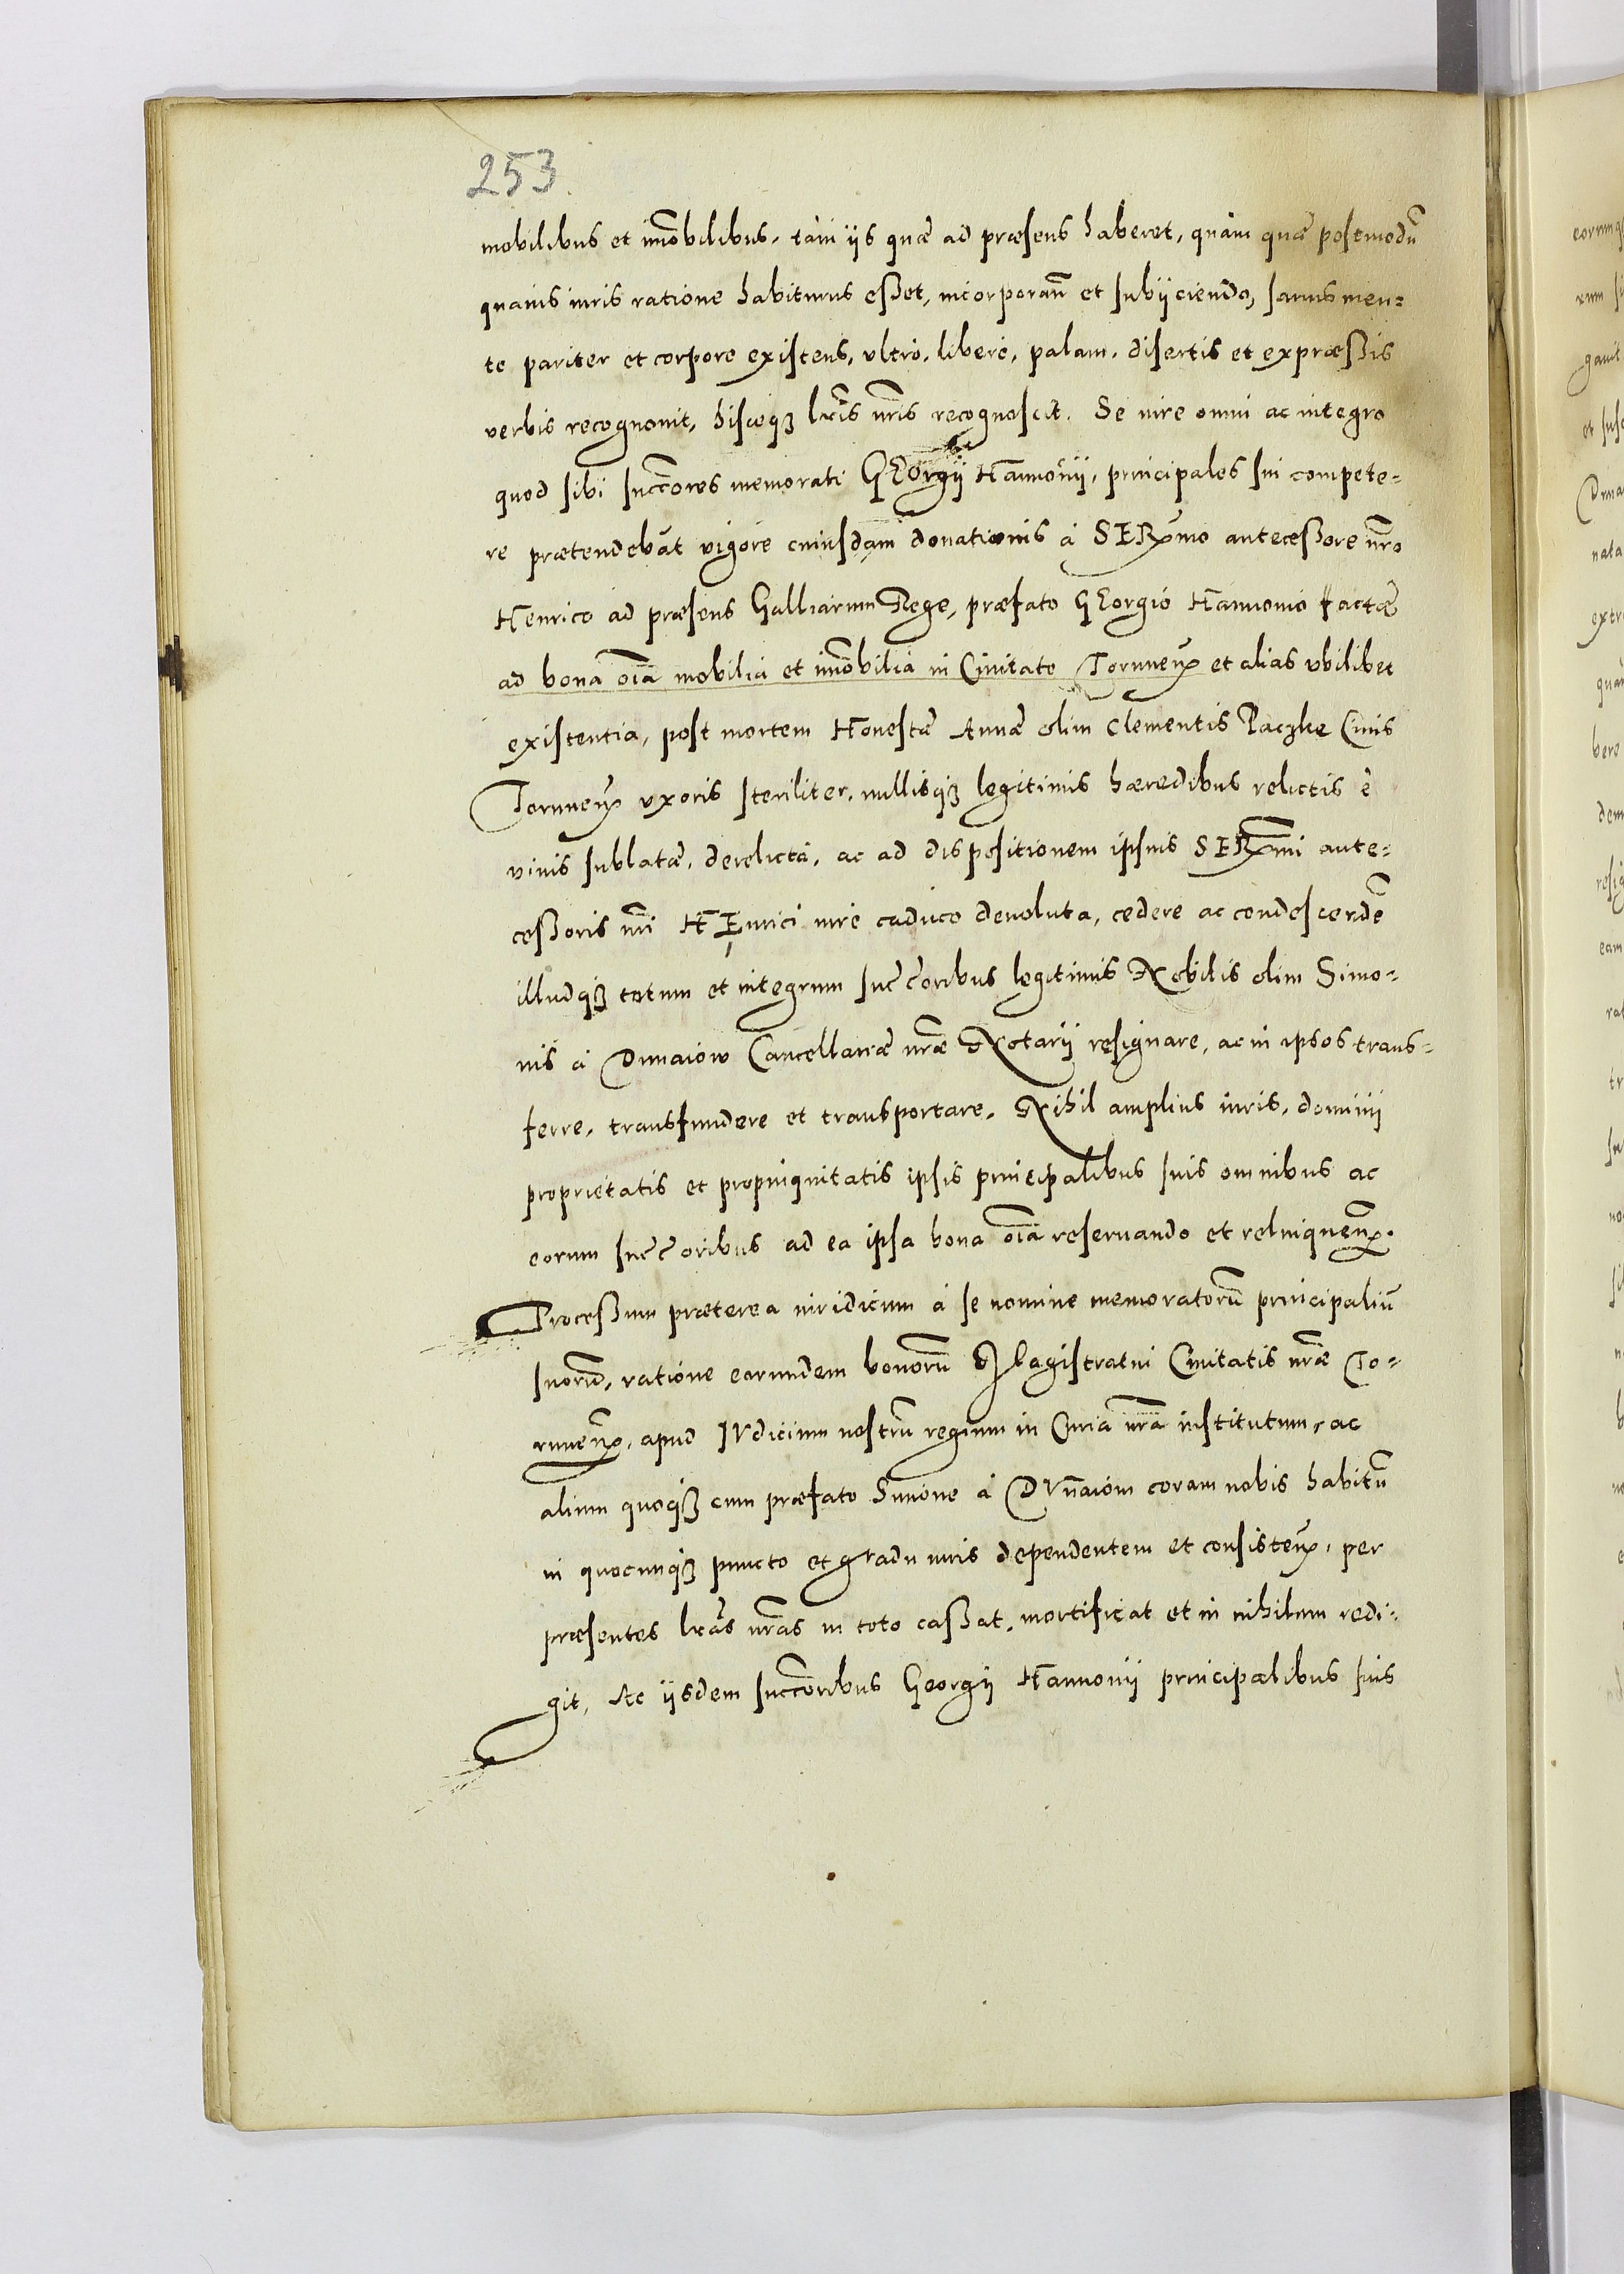 253.
mobilibus et im̄obilibus, tam iis quæ ad præsens haberet, quàm quæ postmodū
quauis iuris ratione habiturus esset, incorporan̄ et subijciendo, sanus men=
te pariter et corpore existens, vltrò, liberè, palam, disertis et expræssis
verbis recognouit, hisceqȝ lr̄is nr̄is recognoscit. Se iure omni ac integro
quod sibi succōres memorati GEorgij Hannonij, principales sui compete=
re prætendebāt vigore cuiusdam donationis à SERmo antecessore nr̄o
Henrico ad præsens Galliarum Rege, præfato GEorgio Hannonio factæ
ad bona oīa mobilia et im̄obilia in Ciuitate Torunen̄ et alias vbilibet
existentia, post mortem Honestæ Annæ olim Clementis Raczke Ciuis
Torunen̄ vxoris steriliter, nullisqȝ legitimis hæredibus relictis è
viuis sublatæ, derelicta, ac ad dispositionem ipsius SERmi ante=
cessoris nr̄i HEnrici iure caduco deuoluta, cedere ac condescendē
illudqȝ totum et integrum succ̄oribus legitimis Nobilis olim Simo=
nis à Dunaiow Cancellariæ nr̄æ Notarij resignare, ac in ipsos trans=
ferre, transfundere et transportare, Nihil amplius iuris, dominij
proprietatis et propinquitatis ipsis principalibus suis omnibus ac
eorum succ̄oribus ad ea ipsa bona oīa reseruando et relinquen̄.
Processum præterea iuridicum à se nomine memoratorū principaliū
suorū, ratione eorundem bonorū Magistratui Ciuitatis nr̄æ To=
runen̄, apud IVdicium nostrū regium in Curia nr̄a institutum, ac
alium quoqȝ cum præfato Simone à DVnaiow coram nobis habitū
in quocunqȝ puncto et gradu iuris dependentem et consisten̄, per
præsentes lr̄as nr̄as in toto cassat, mortificat et in nihilum redi=
git, Ac ijsdem succōribus Georgij Hannonij principalibus suis